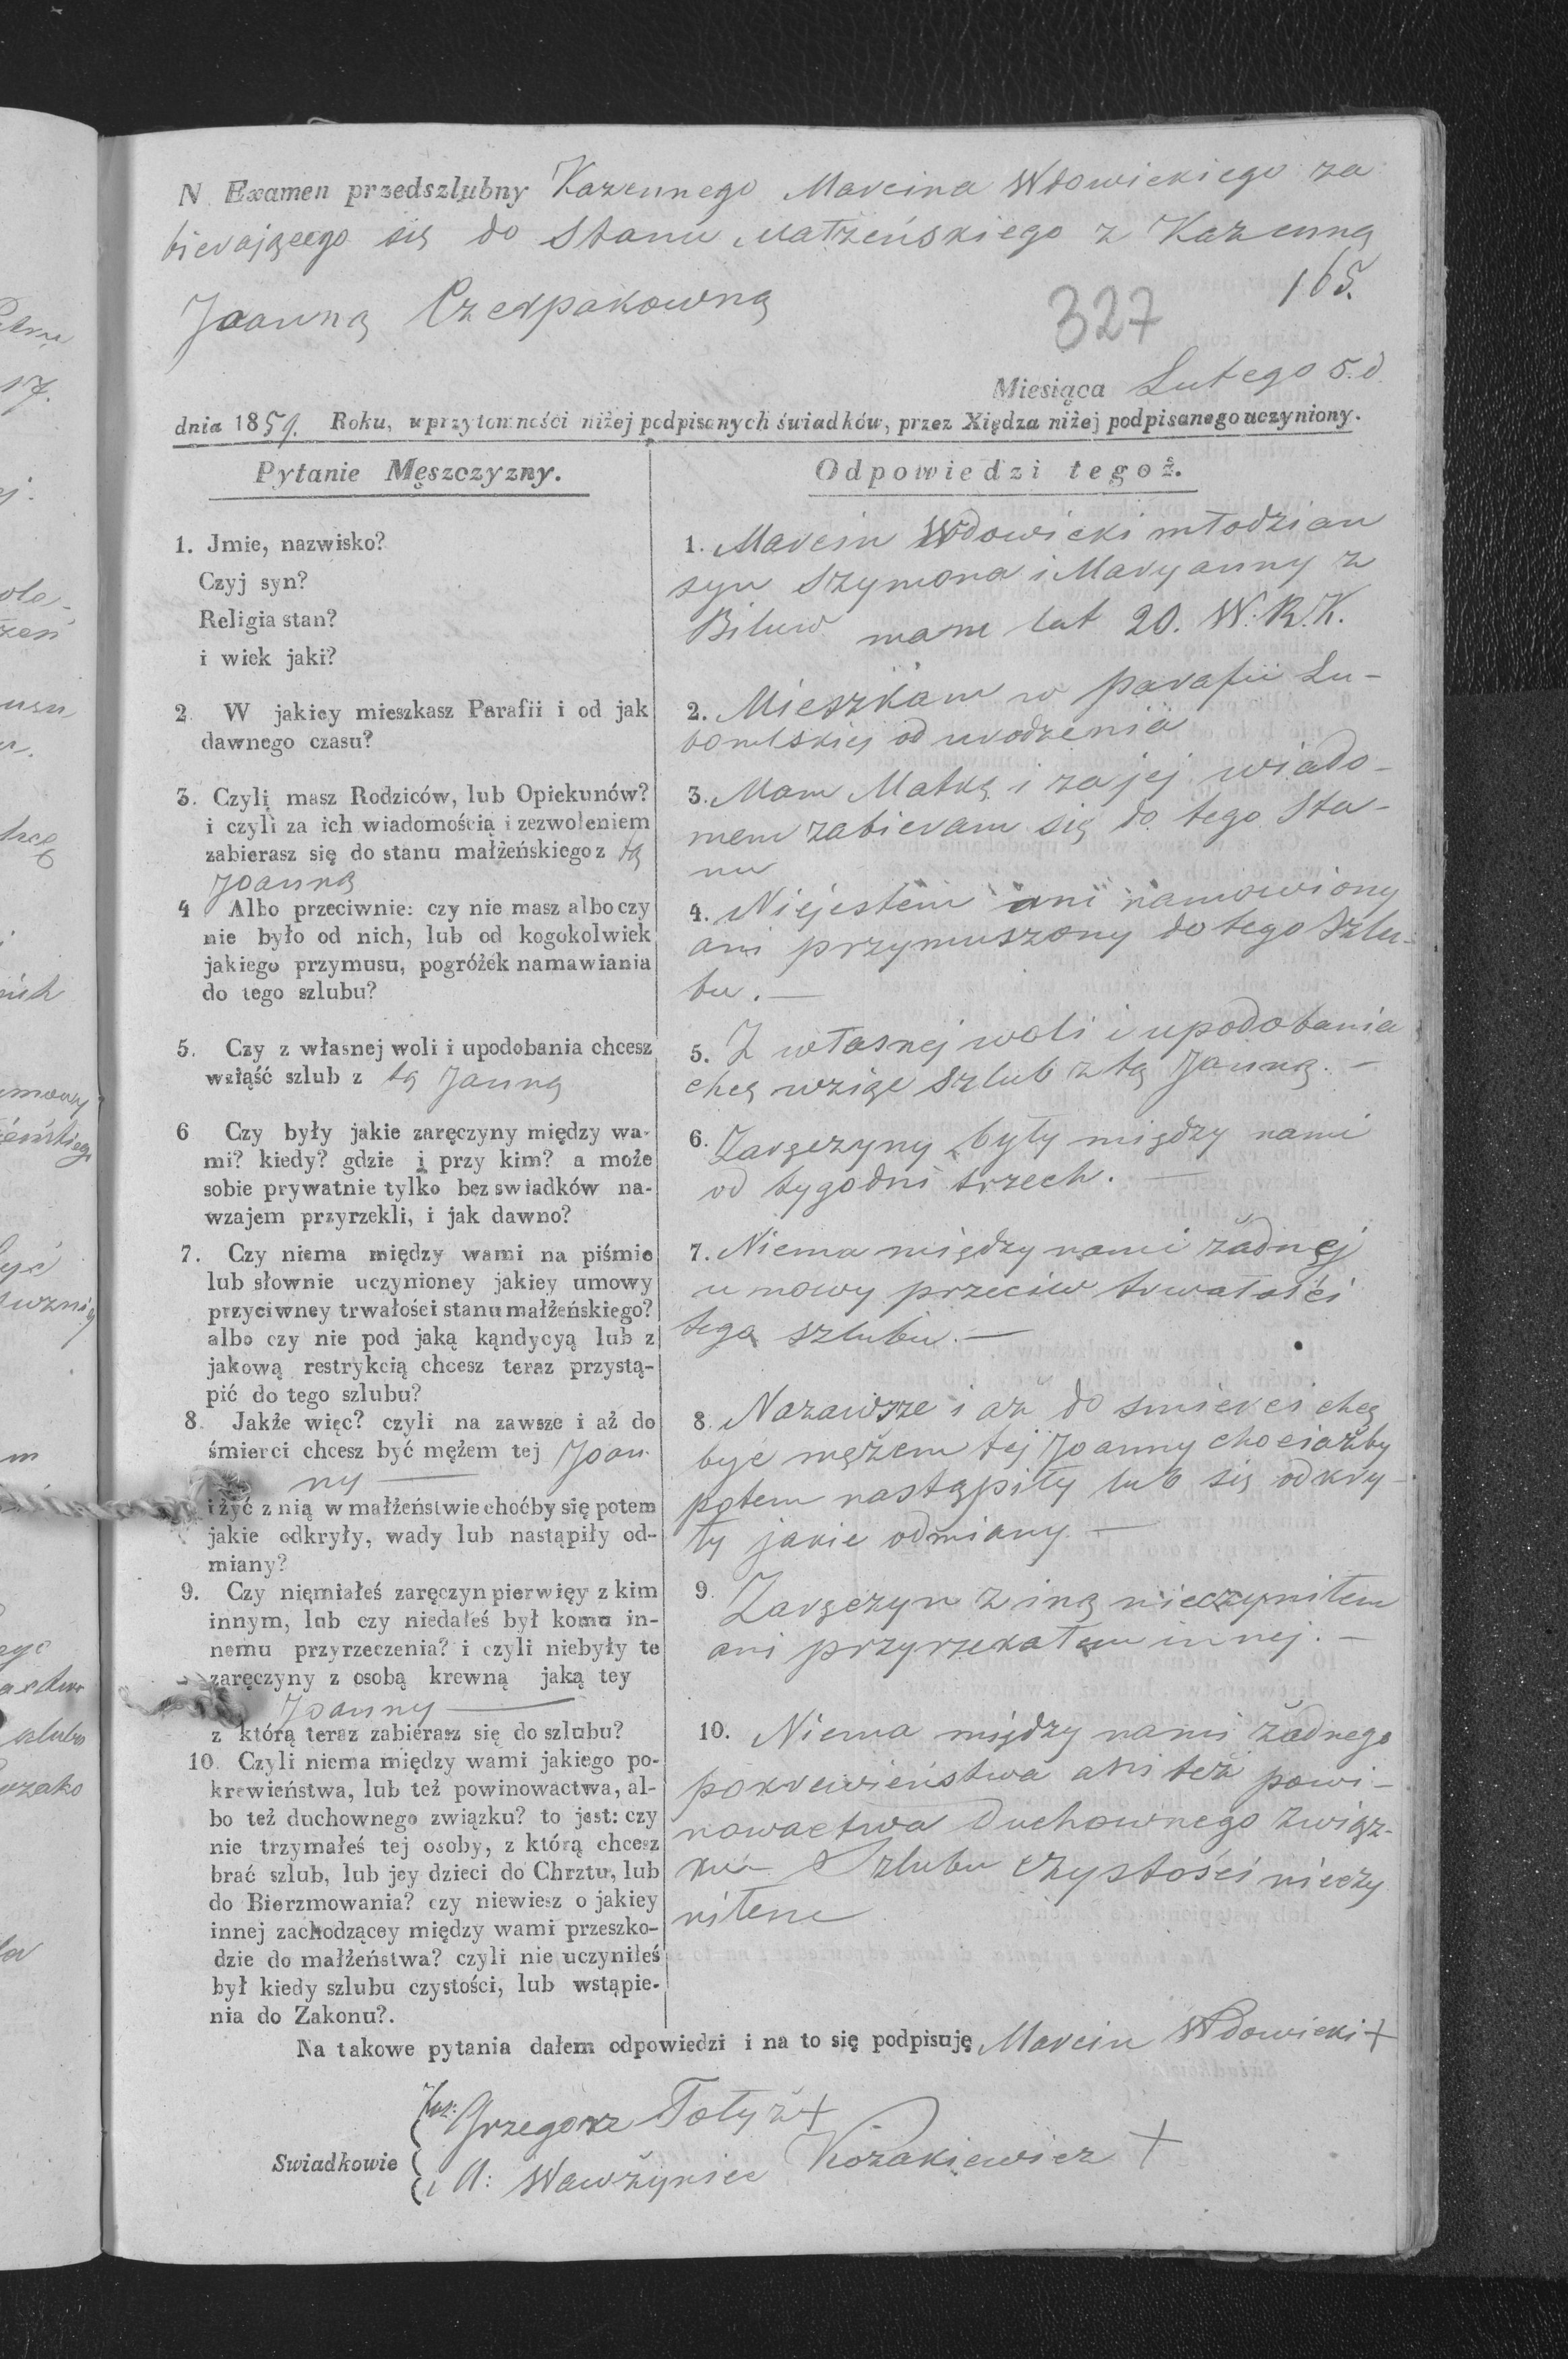 N Examen przedszlubny Kazennego Marcina Wdowickiego za
bierającego się do Stanu Małżeńskiego z Kazenną
165.
Joanną Czerpakowną
327
Miesiąca Lutego 5. d
dnia 1859. Roku, w przytomności niżej podpisanych świadków, przez Xiędza niżej podpisanego uczyniony.
Pytanie Męszczyzny.
1. Jmie, nazwisko?
Czyj syn?
Religia stan?
i wiek jaki?
2. W jakiey mieszkasz Parafii i od jak
dawnego czasu?
3. Czyli masz Rodziców, lub Opiekunów?
i czyli za ich wiadomością i zezwoleniem
zabierasz się do stanu małżeńskiego z tą
Joanną
4 Albo przeciwnie: czy nie masz albo czy
nie było od nich, lub od kogokolwiek
jakiego przymusu, pogróżek namawiania
do tego szlubu?
5. Czy z własnej woli i upodobania chcesz
wziąść szlub z tą Janną
6 Czy były jakie zaręczyny między wa-
mi? kiedy? gdzie i przy kim? a może
sobie prywatnie tylko bez swiadków na-
wzajem przyrzekli, i jak dawno?
7. Czy niema między wami na piśmie
lub słownie uczynioney jakiey umowy
przyciwney trwałości stanu małżeńskiego?
albo czy nie pod jaką kąndycyą lub z
jakową restrykcią chcesz teraz przystą-
pić do tego szlubu?
8. Jakże więc? czyli na zawsze i aż do
śmierci chcesz być mężem tej Joan
ny
i żyć z nią w małżeństwie choćby się potem
jakie odkryły, wady lub nastąpiły od-
miany?
9. Czy nięmiałeś zaręczyn pierwięy z kim
innym, lub czy niedałeś był komu in-
nemu przyrzeczenia? i czyli niebyły te
zaręczyny z osobą krewną jaką tey
Joanny
z którą teraz zabiérasz się do szlubu?
10. Czyli niema między wami jakiego po-
krewieństwa, lub też powinowactwa, al-
bo też duchownego związku? to jest: czy
nie trzymałeś tej osoby, z którą chcesz
brać szlub, lub jey dzieci do Chrztu, lub
do Bierzmowania? czy niewiesz o jakiey
innej zachodzącey między wami przeszko-
dzie do małżeństwa? czyli nie uczyniłeś
był kiedy szlubu czystości, lub wstąpie-
nia do Zakonu?.
Odpowiedzi tegoż.
1. Marcin Wdowicki młodzian
syn Szymona i Maryanny z
Biluw mam lat 20. W. R. K.
2. Mieszkam w parafii Lu-
bomlskiej od urodzenia
3. Mam Matkę i za jej wiado-
mem zabieram się do tego Sta-
nu
4. Niejestem ani namowiony
ani przymuszony do tego Szlu-
bu. —
5. Z własnej woli i upodobania
chcę wziąc szlub z tą Janną. —
6. Zaręczyny były między nami
od tygodni trzech. —
7. Niema między nami żadnej
umowy przeciw trwałości
tego szlubu. —
8. Nazawsze i aż do smierci chcę
byc mężem tej Joanny chociażby
potem nastąpiły lub się odkry-
ły jakie odmiany —
9. Zaręczyn z iną nieczyniłem
ani przyrzekałem innej. —
10. Niema między nami żadnego
pokrewieństwa ani też powi-
nowactwa Duchownego związ-
ku — Szlubu czystości nieczy
niłem
Na takowe pytania dałem odpowiedzi i na to się podpisuję Marcin Wdowicki +
Grzegorz Tołyż +
Swiadkowie
i A: Wawżyniec Kozakiewicz +